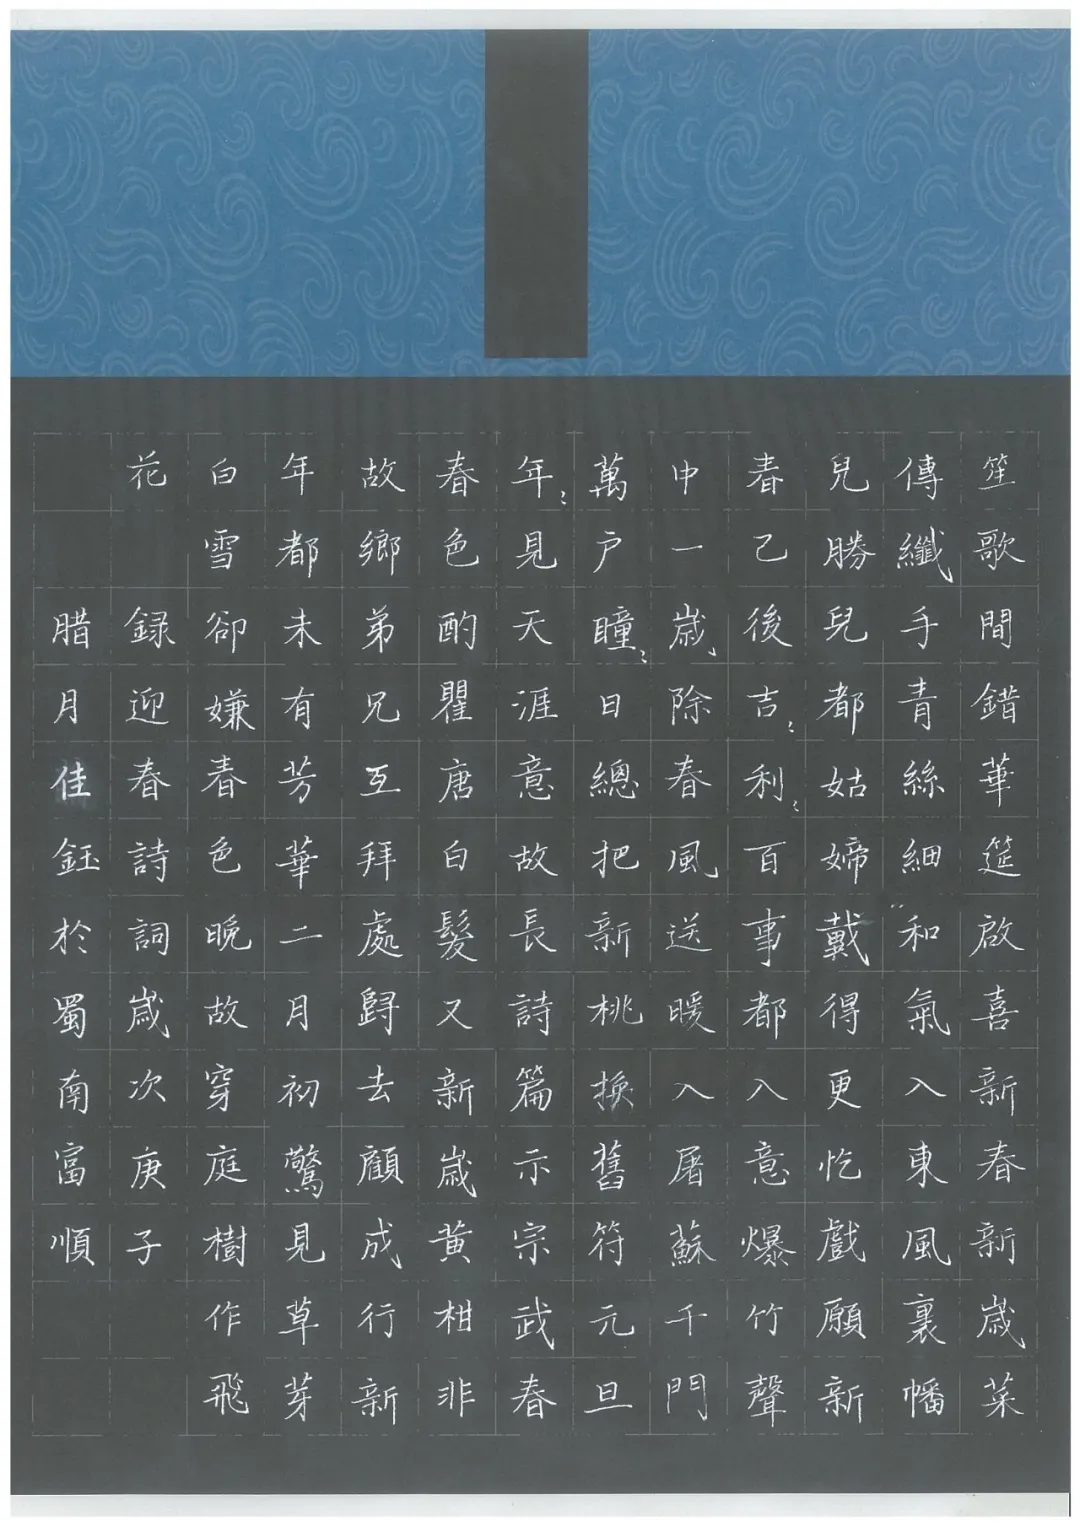 笙歌間錯華筵啟喜新春新歲菜
傳纖手青絲細和氣入東風裏幡
兒勝兒都姑媂戴得更忔戲願新
春已後吉〻利〻百事都入意爆竹聲
中一歲除春風送暖入屠蘇千門
萬戶曈〻日總把新桃換舊符元旦
年〻見天涯意故長詩篇示宗武春
春色酌瞿唐白髮又新歲黃柑非
故鄉弟兄互拜處歸去顧成行新
年都未有芳華二月初驚見草芽
白雪卻嫌春色晚故穿庭樹作飛
花錄迎春詩詞歲次庚子
腊月佳鈺於蜀南富順